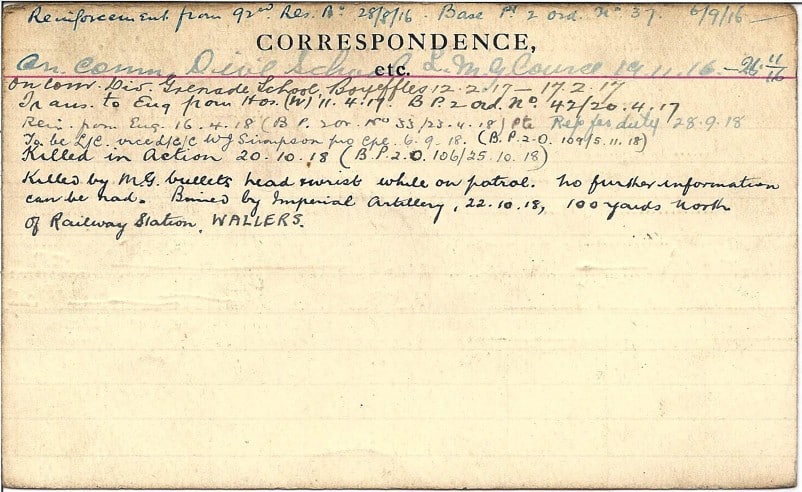 Reinforcement from 92nd Res. Bn 28/8/16. Base Pt 2 ord. No 37. 6/9/16 —
CORRESPONDENCE,
etc.
On comm Div'l School L.M.G Course 19.11.16. — 26 11/16
On com. Div. Grenade School, Boyeffles 12.2.17 — 17.2.17
Trans. to Eng from Hos. (W) 11.4.17. B.P.2 ord. No. 42/20.4.17
Rein. from Eng. 16.4.18 (B.P.2 or. No 33/23.4.18) Pte Rep for duty 28.9.18
To be L/C. vice L/C W J Simpson pro Cpl. 6.9.18. (B.P.2.O. 109/5.11.18)
Killed in Action 20.10.18 (B.P.2.O. 106/25.10.18)
Killed by M.G. bullets head & wrist while on patrol. No further information
can be had. Buried by Imperial Artillery, 22.10.18, 100 yards North
of Railway Station, WALLERS.